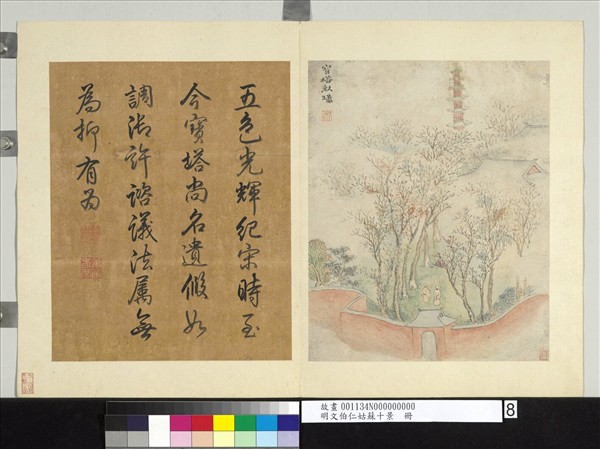 五色光輝紀宋時至
今寶塔尚名遺假如
調御許諮議法属無
為抑有為
寶塔
故畫 001134N000000000
明文伯仁姑蘇十景 冊
8